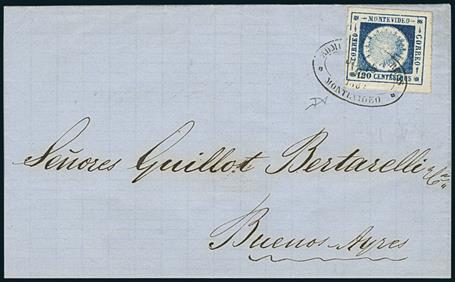 MONTEVIDEO
CORREO
CORREO
120 CENTESIMOS
MONTEVIDEO
Señores Guillot Bertarelli y Ca
Buenos Ayres